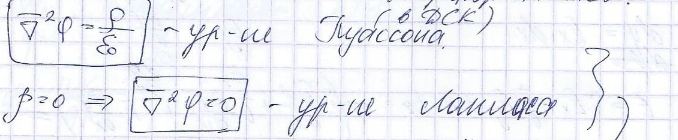 ∇²φ = ρ/ε₀ - ур-ие Пуассона (в ДСК)
ρ=0 ⇒ ∇²φ=0 - ур-ие Лапласа